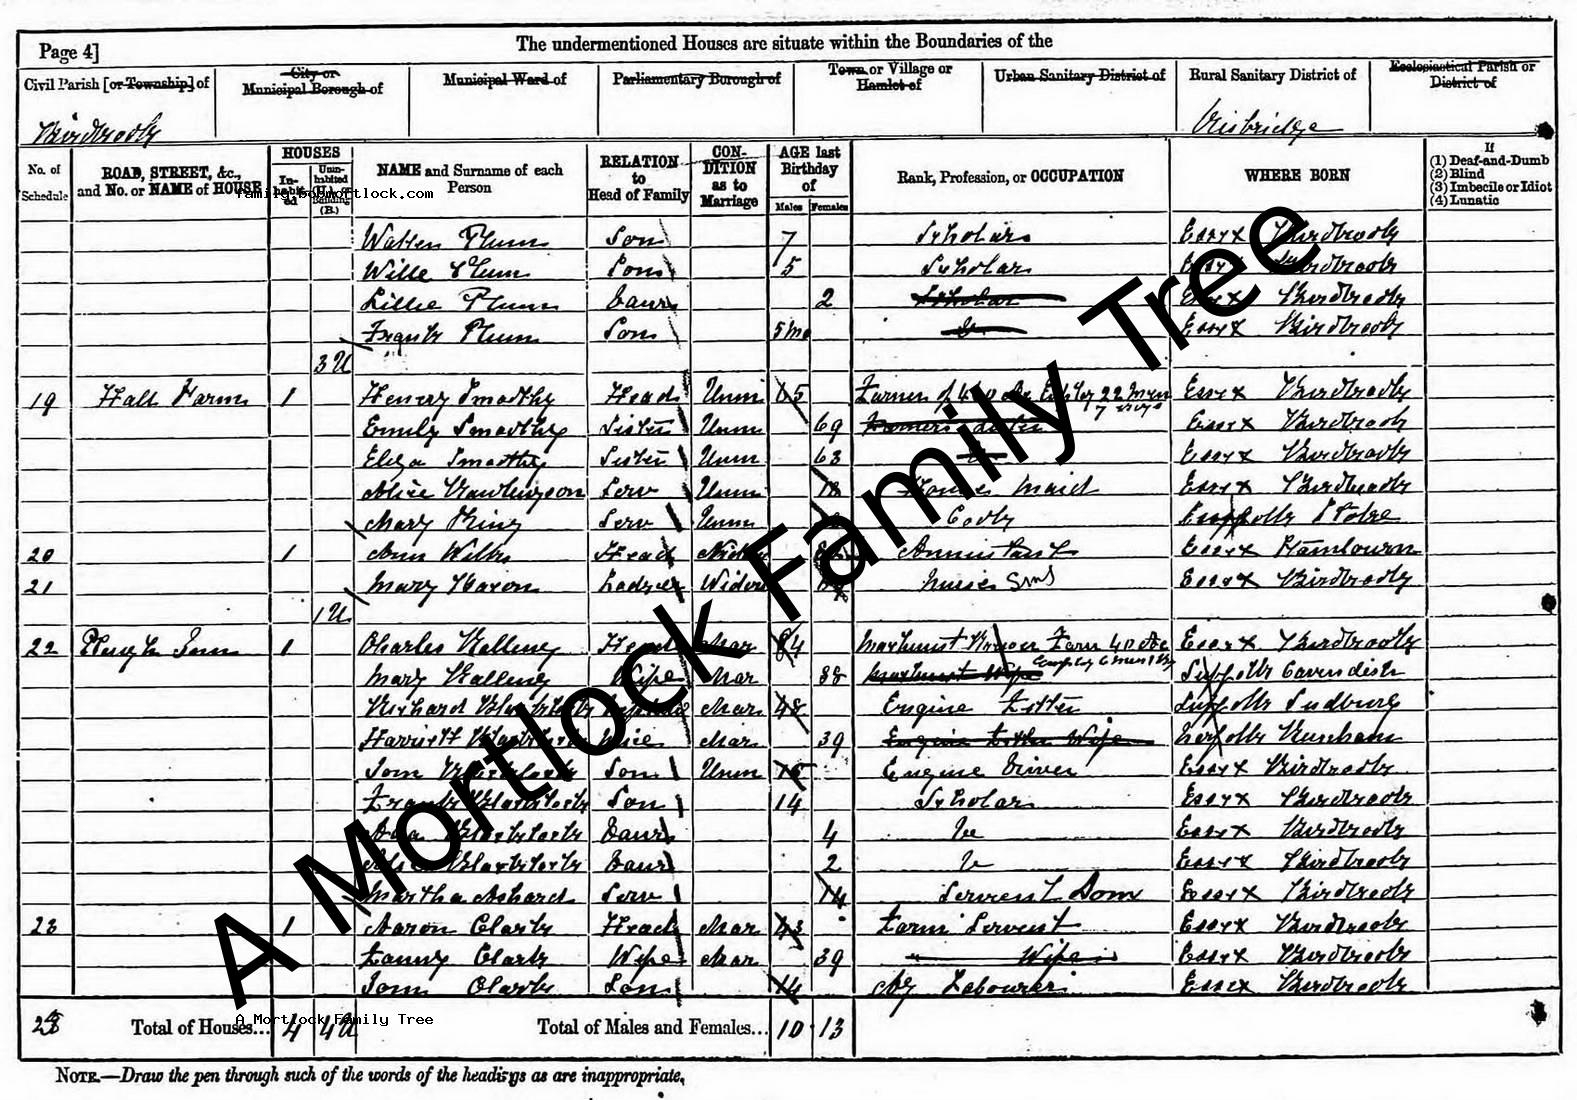 Page 4]
The undermentioned Houses are situate within the Boundaries of the
Civil Parish [or Township] of
City or Municipal Borough of
Municipal Ward of
Parliamentary Borough of
Town or Village or Hamlet of
Urban Sanitary District of
Rural Sanitary District of
Ecclesiastical Parish or District of
Birdbrook
Risbridge
No. of Schedule
ROAD, STREET, &c., and No. or NAME of HOUSE
HOUSES
In-habit-ed
Unin-habited (U.), or Building (B.)
NAME and Surname of each Person
RELATION to Head of Family
CON-DITION as to Marriage
AGE last Birthday of
Males
Females
Rank, Profession, or OCCUPATION
WHERE BORN
If
(1) Deaf-and-Dumb
(2) Blind
(3) Imbecile or Idiot
(4) Lunatic
family.bobmortlock.com
Walter Plum Son 7 Scholar Essex Birdbrook
Willie Plum Son 5 Scholar Essex Birdbrook
Lillie Plum Daur 2 Scholar Essex Birdbrook
Frank Plum Son 5 mo Essex Birdbrook
3 U
19 Hall Farm 1 Henery Smoothy Head Unm 65 Farmer of Acr 22 Men Essex Birdbrook
7 Boys
Emily Smoothy Sister Unm 69 Farmers Sister Essex Birdbrook
Eliza Smoothy Sister Unm 63 Essex Birdbrook
Alice Serv Unm 18 House Maid Essex Birdbrook
Mary King Serv Unm Cook Suffolk Stoke
20 1 Ann Head Annuitant Essex
21 Mary Lodger Widow Nurse SMS Essex Birdbrook
1 U
22 Plough Inn 1 Charles Head Mar 64 Farm 40 Acr Essex Birdbrook
Mary Wife Mar 38 Suffolk Cavendish
Richard Mar 48 Engine Fitter Suffolk Sudbury
Harriett Mar 39 Engine Fitter Wife Norfolk
Tom Son Unm Engine Driver Essex Birdbrook
Frank Son 14 Scholar Essex Birdbrook
Ada Daur 4 Do Essex Birdbrook
Daur 2 Do Essex Birdbrook
Martha Serv 14 Servent Dom Essex Birdbrook
23 1 Aaron Clark Head Mar 43 Farm Servent Essex Birdbrook
Fanny Clark Wife Mar 39 Wife Essex Birdbrook
Tom Clark Son 14 Ag Labourer Essex Birdbrook
Total of Houses... 4 4 U Total of Males and Females... 10 13
A Mortlock Family Tree
NOTE.—Draw the pen through such of the words of the headings as are inappropriate.
A Mortlock Family Tree